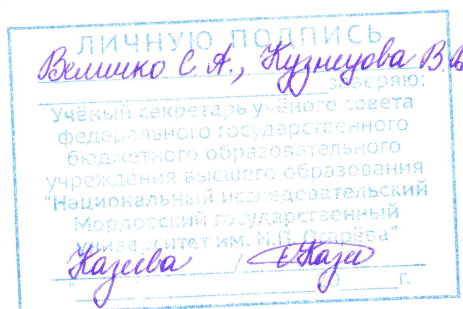 ЛИЧНУЮ ПОДПИСЬ
Величко С. А., Кузнецова В. В.
заверяю:
Учёный секретарь учёного совета
федерального государственного
бюджетного образовательного
учреждения высшего образования
"Национальный исследовательский
Мордовский государственный
университет им. Н.П. Огарёва"
Казеева /
" г.